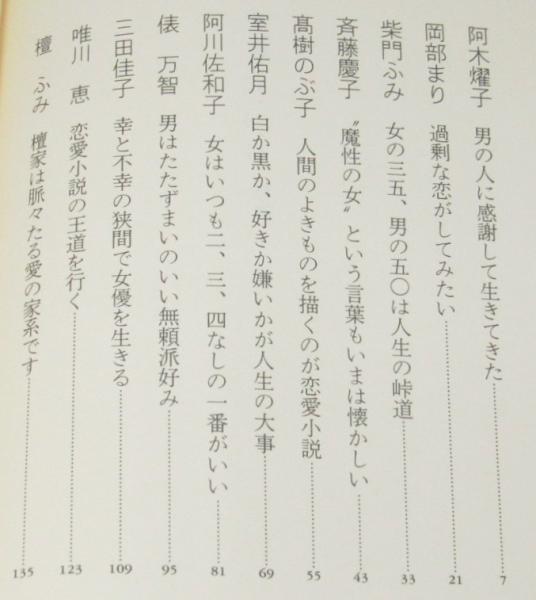 阿木燿子　男の人に感謝して生きてきた……7
岡部まり　過剰な恋がしてみたい……21
柴門ふみ　女の三五、男の五〇は人生の峠道……33
斉藤慶子　〝魔性の女〟という言葉もいまは懐かしい……43
髙樹のぶ子　人間のよきものを描くのが恋愛小説……55
室井佑月　白か黒か、好きか嫌いかが人生の大事……69
阿川佐和子　女はいつも二、三、四なしの一番がいい……81
俵　万智　男はたたずまいのいい無頼派好み……95
三田佳子　幸と不幸の狭間で女優を生きる……109
唯川　恵　恋愛小説の王道を行く……123
檀　ふみ　檀家は脈々たる愛の家系です……135